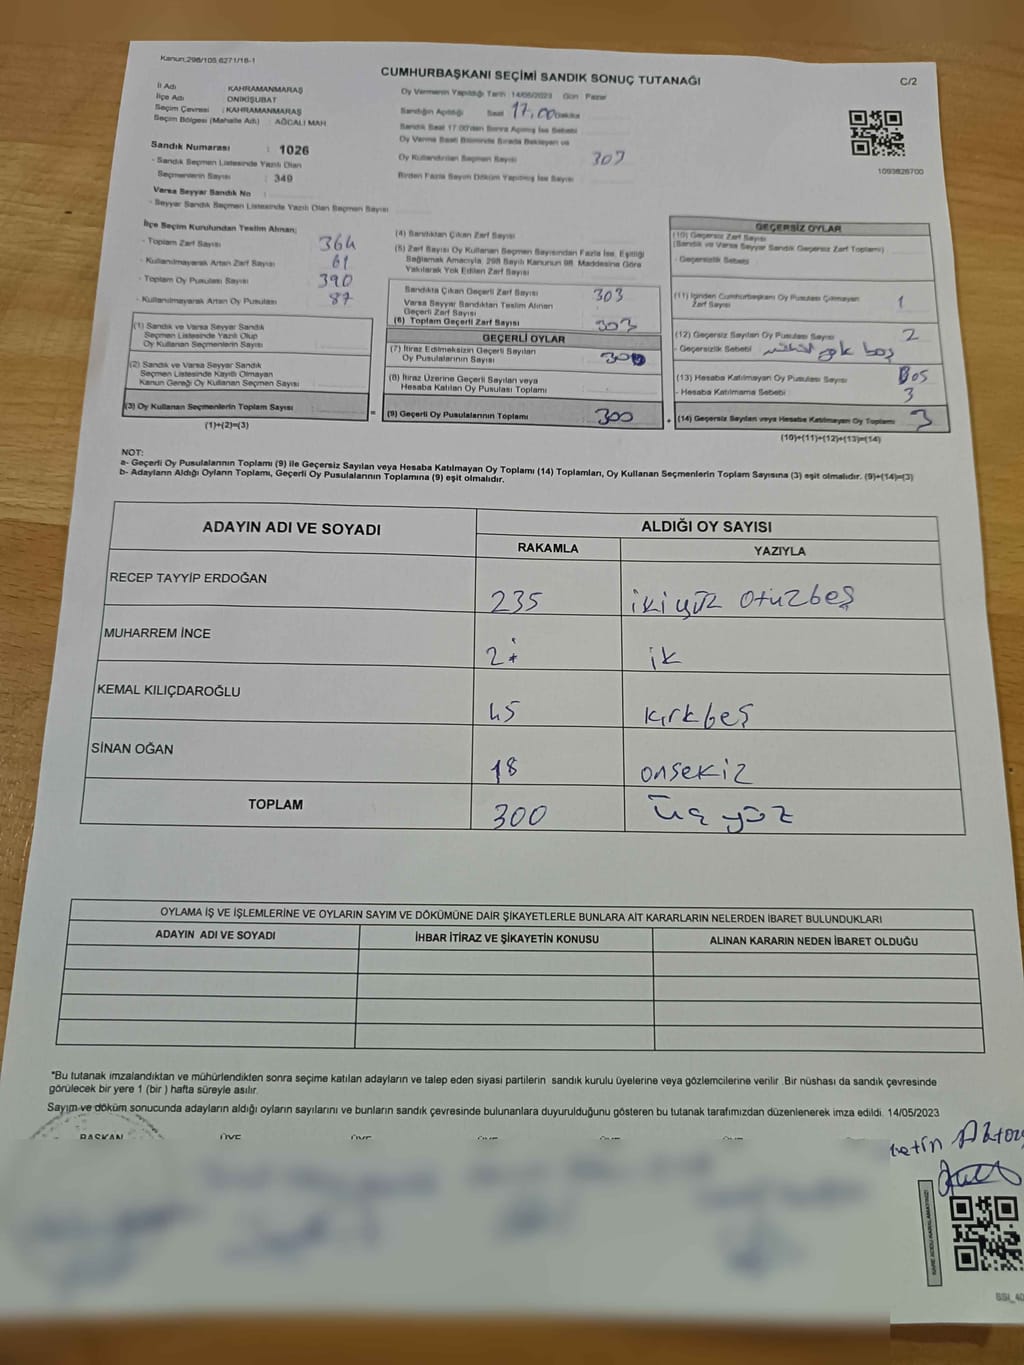 Kanun:298/105,6271/16-1
CUMHURBAŞKANI SEÇİMİ SANDIK SONUÇ TUTANAĞI
C/2
İl Adı KAHRAMANMARAŞ
İlçe Adı ONİKİŞUBAT
Seçim Çevresi : KAHRAMANMARAŞ
Seçim Bölgesi (Mahalle Adı) : AĞCALI MAH
Sandık Numarası : 1026
- Sandık Seçmen Listesinde Yazılı Olan
Seçmenlerin Sayısı : 349
Varsa Seyyar Sandık No :
- Seyyar Sandık Seçmen Listesinde Yazılı Olan Seçmen Sayısı
Oy Vermenin Yapıldığı Tarih : 14/05/2023 Gün : Pazar
Sandığın Açıldığı Saat 17,00 Dakika
Sandık Saat 17:00'den Sonra Açılmış İse Sebebi
Oy Verme Saati Bitiminde Sırada Bekleyen ve
Oy Kullandırılan Seçmen Sayısı
Birden Fazla Sayım Döküm Yapılmış İse Sayısı
1093826700
İlçe Seçim Kurulundan Teslim Alınan;
- Toplam Zarf Sayısı 364
- Kullanılmayarak Artan Zarf Sayısı 61
- Toplam Oy Pusulası Sayısı 390
- Kullanılmayarak Artan Oy Pusulası 87
(1) Sandık ve Varsa Seyyar Sandık
Seçmen Listesinde Yazılı Olup
Oy Kullanan Seçmenlerin Sayısı
(2) Sandık ve Varsa Seyyar Sandık
Seçmen Listesinde Kayıtlı Olmayan
Kanun Gereği Oy Kullanan Seçmen Sayısı
(3) Oy Kullanan Seçmenlerin Toplam Sayısı
(1)+(2)=(3)
=
(4) Sandıktan Çıkan Zarf Sayısı
(5) Zarf Sayısı Oy Kullanan Seçmen Sayısından Fazla İse, Eşitliği
Sağlamak Amacıyla, 298 Sayılı Kanunun 98. Maddesine Göre
Yakılarak Yok Edilen Zarf Sayısı
Sandıkta Çıkan Geçerli Zarf Sayısı 303
Varsa Seyyar Sandıktan Teslim Alınan
Geçerli Zarf Sayısı
(6) Toplam Geçerli Zarf Sayısı 303
GEÇERLİ OYLAR
(7) İtiraz Edilmeksizin Geçerli Sayılan
Oy Pusulalarının Sayısı 300
(8) İtiraz Üzerine Geçerli Sayılan veya
Hesaba Katılan Oy Pusulası Toplamı
(9) Geçerli Oy Pusulalarının Toplamı 300
+
GEÇERSİZ OYLAR
(10) Geçersiz Zarf Sayısı
(Sandık ve Varsa Seyyar Sandık Geçersiz Zarf Toplamı)
- Geçersizlik Sebebi
(11) İçinden Cumhurbaşkanı Oy Pusulası Çıkmayan
Zarf Sayısı 1
(12) Geçersiz Sayılan Oy Pusulası Sayısı 2
- Geçersizlik Sebebi boş
(13) Hesaba Katılmayan Oy Pusulası Sayısı Bos
- Hesaba Katılmama Sebebi 3
(14) Geçersiz Sayılan veya Hesaba Katılmayan Oy Toplamı 3
(10)+(11)+(12)+(13)=(14)
NOT:
a- Geçerli Oy Pusulalarının Toplamı (9) ile Geçersiz Sayılan veya Hesaba Katılmayan Oy Toplamı (14) Toplamları, Oy Kullanan Seçmenlerin Toplam Sayısına (3) eşit olmalıdır. (9)+(14)=(3)
b- Adayların Aldığı Oyların Toplamı, Geçerli Oy Pusulalarının Toplamına (9) eşit olmalıdır.
ADAYIN ADI VE SOYADI ALDIĞI OY SAYISI
RAKAMLA YAZIYLA
RECEP TAYYİP ERDOĞAN 235 ikiyüz otuzbeş
MUHARREM İNCE 2 ik
KEMAL KILIÇDAROĞLU 45 kırkbeş
SİNAN OĞAN 18 onsekiz
TOPLAM 300 üç yüz
OYLAMA İŞ VE İŞLEMLERİNE VE OYLARIN SAYIM VE DÖKÜMÜNE DAİR ŞİKAYETLERLE BUNLARA AİT KARARLARIN NELERDEN İBARET BULUNDUKLARI
ADAYIN ADI VE SOYADI İHBAR İTİRAZ VE ŞİKAYETİN KONUSU ALINAN KARARIN NEDEN İBARET OLDUĞU
*Bu tutanak imzalandıktan ve mühürlendikten sonra seçime katılan adayların ve talep eden siyasi partilerin sandık kurulu üyelerine veya gözlemcilerine verilir .Bir nüshası da sandık çevresinde
görülecek bir yere 1 (bir ) hafta süreyle asılır.
Sayım ve döküm sonucunda adayların aldığı oyların sayılarını ve bunların sandık çevresinde bulunanlara duyurulduğunu gösteren bu tutanak tarafımızdan düzenlenerek imza edildi. 14/05/2023
BAŞKAN ÜYE ÜYE ÜYE ÜYE ÜYE